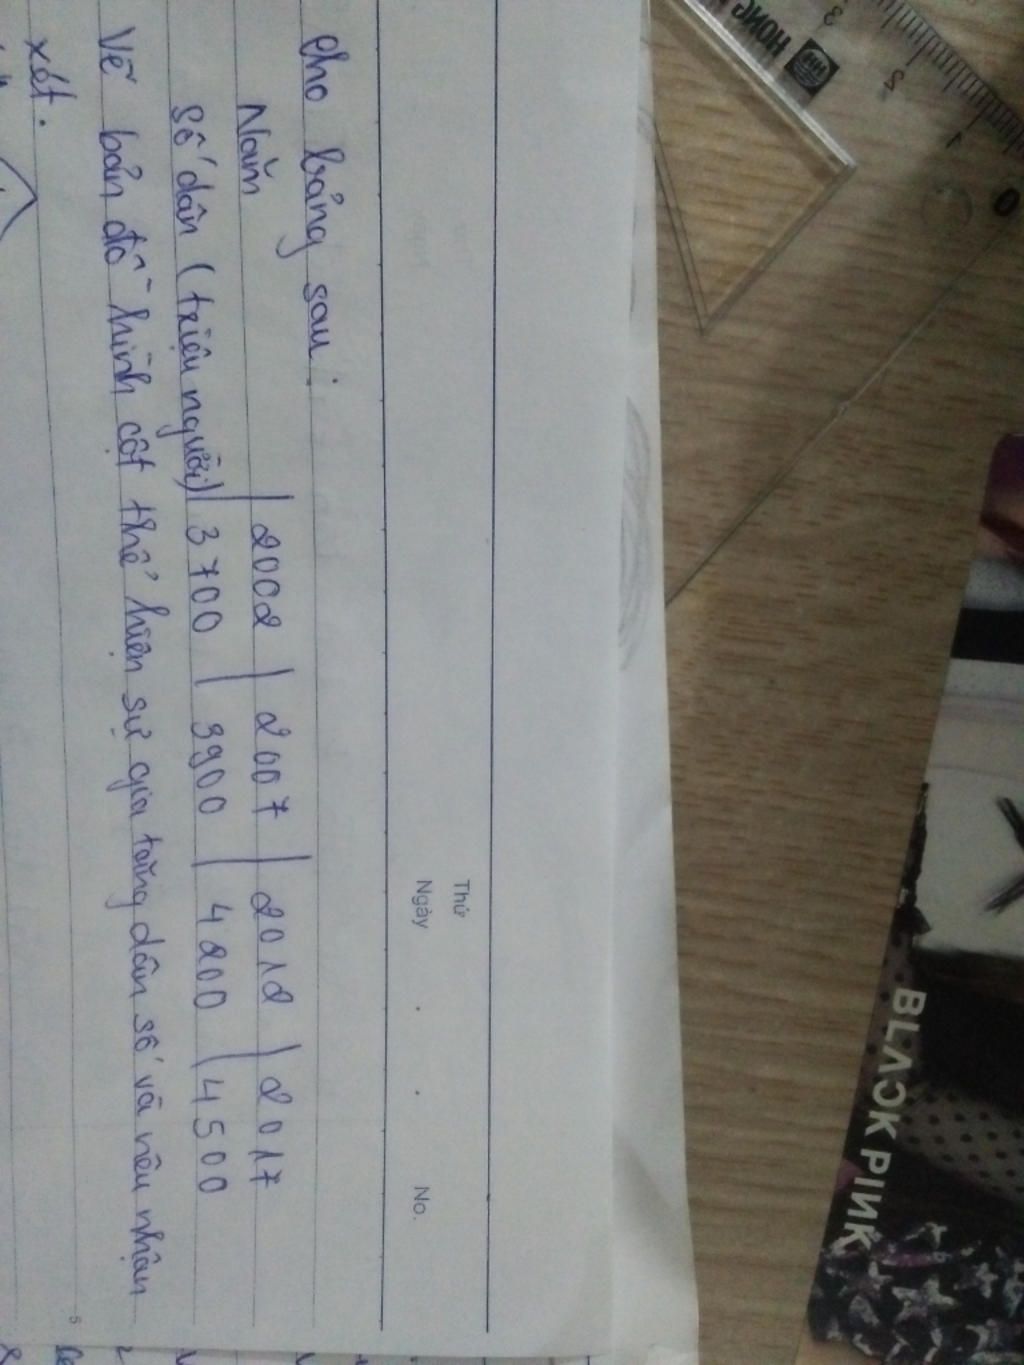 Thứ
Ngày . . No.
Cho bảng sau:
Năm | 2002 | 2007 | 2012 | 2017
Số dân (triệu người) | 3700 | 3900 | 4200 | 4500
Vẽ bản đồ hình cột thể hiện sự gia tăng dân số và nêu nhận
xét.
5
BLACKPIИK
HONG
0
1
2
3